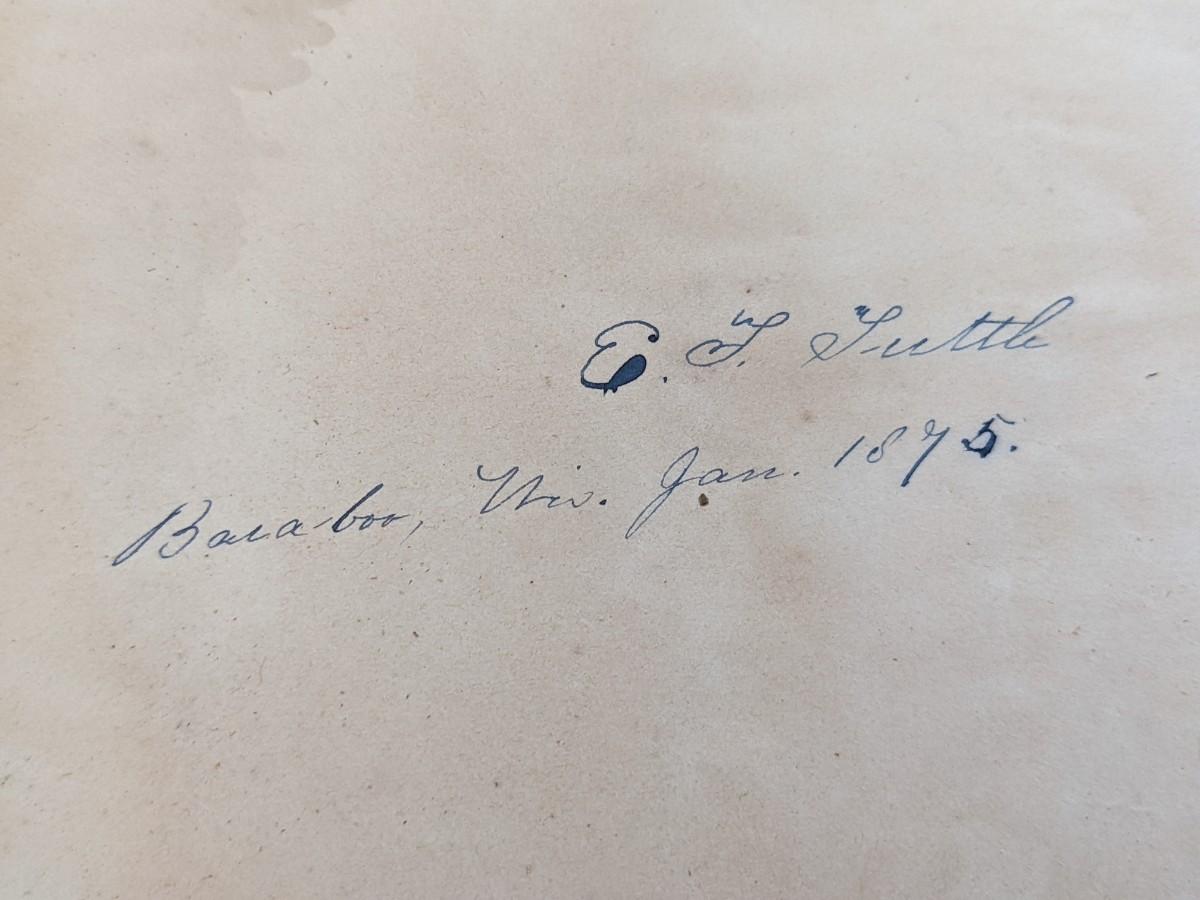 E. T. Tuttle
Baraboo, Wis. Jan. 1875.